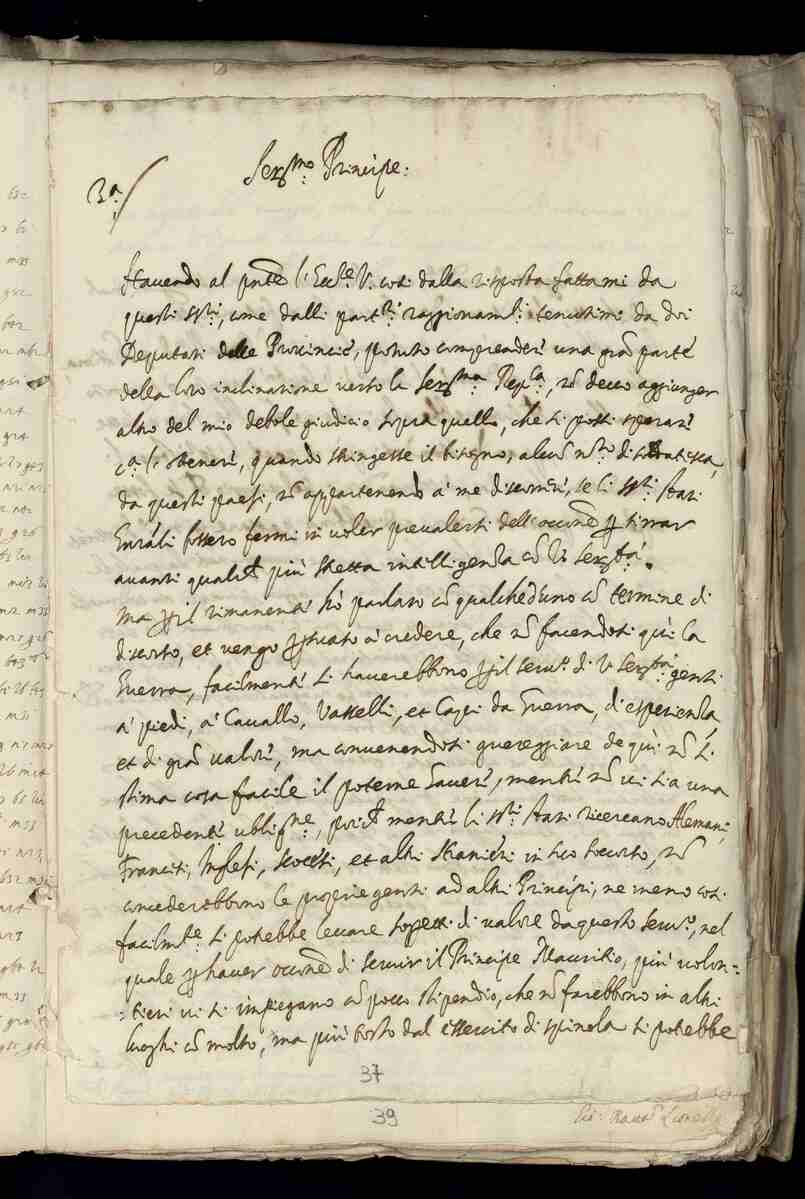 3.ª
Ser.mo Principe:
Havendo al pnte l'Ecc.e V. così dalla risposta fattami da
questi ss.ri, come dalli part.ri raggionam.ti tenutimi da doi
Deputati delle Provincie, potuto comprender una gran parte
della loro inclinatione verso la Ser.ma Rep.ca, nõ devo aggiunger
altro del mio debole giudicio sopra quello, che si possi sperar
obtener, quando stringesse il bisogno, alcun
da questi paesi, nõ appartenendo à me discorrer, se li ss.ri Stati
Gñrali fossero fermi in voler prevalersi dell'occõne p tirrar
avanti qualche più stretta intelligenza cõ V. Ser.tà.
Ma p il rimanente hò parlato cõ qualched'uno cõ termine di
discorso, et vengo psuato à creder, che nõ facendosi quì la
Guerra, facilmente si haverebbono p il serv.o di V. Ser.tà genti
à piedi, à Cavallo, Vasselli, et Capi da Guerra, di esperienza,
et di grã valor, ma convenendosi guereggiare de quì nõ si
stima cosa facile il poterne haver, mentre nõ vi sia una
precedente ubblig.ne, poiche mentre li ss.ri Stati ricercano Alemani,
Francesi, Inglesi, Scocesi, et altri stranieri in suo soccorso, nõ
concederebbono le proprie genti ad altri Principi, ne meno così
facilm.te si potrebbe levare sogetti di valore da questo serv.o, nel
quale p haver occõne di servir il Principe Mauritio, più volon=
=tieri vi si impiegano cõ poco stipendio, che nõ farebbono in altri
luoghi cõ molto, ma più tosto dal essercito di Spinola si potrebbe
37
39